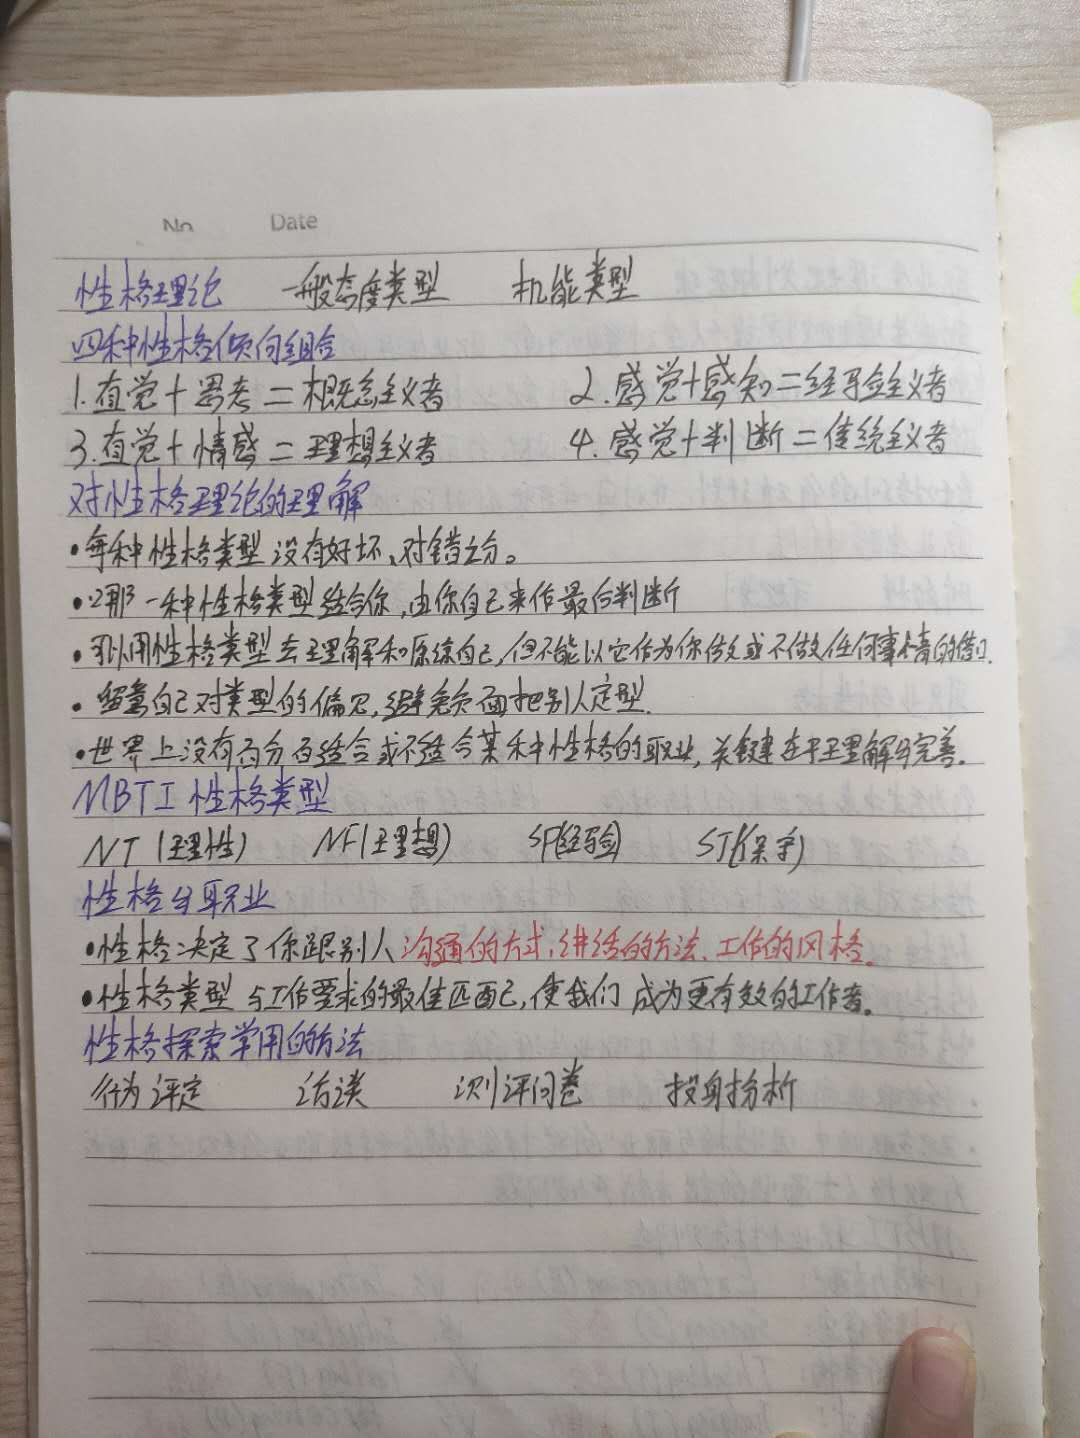 No Date
性格理论 一般态度类型 机能类型
四种性格倾向组合
1.直觉+思考=概念主义者 2.感觉+感知=经验主义者
3.直觉+情感=理想主义者 4.感觉+判断=传统主义者
对性格理论的理解
·每种性格类型没有好坏、对错之分。
·哪一种性格类型适合你,由你自己来作最合判断
·可以用性格类型去理解和原谅自己,但不能以它作为你做或不做任何事情的借口.
·留意自己对类型的偏见,避免负面把别人定型.
·世界上没有百分百适合或不适合某种性格的职业,关键在于理解与完善.
MBTI性格类型
NT(理性) NF(理想) SP(经验) SJ(保守)
性格与职业
·性格决定了你跟别人沟通的方式,讲话的方法、工作的风格。
·性格类型与工作要求的最佳匹配,使我们成为更有效的工作者。
性格探索常用的方法
行为评定 访谈 测评问卷 投射分析